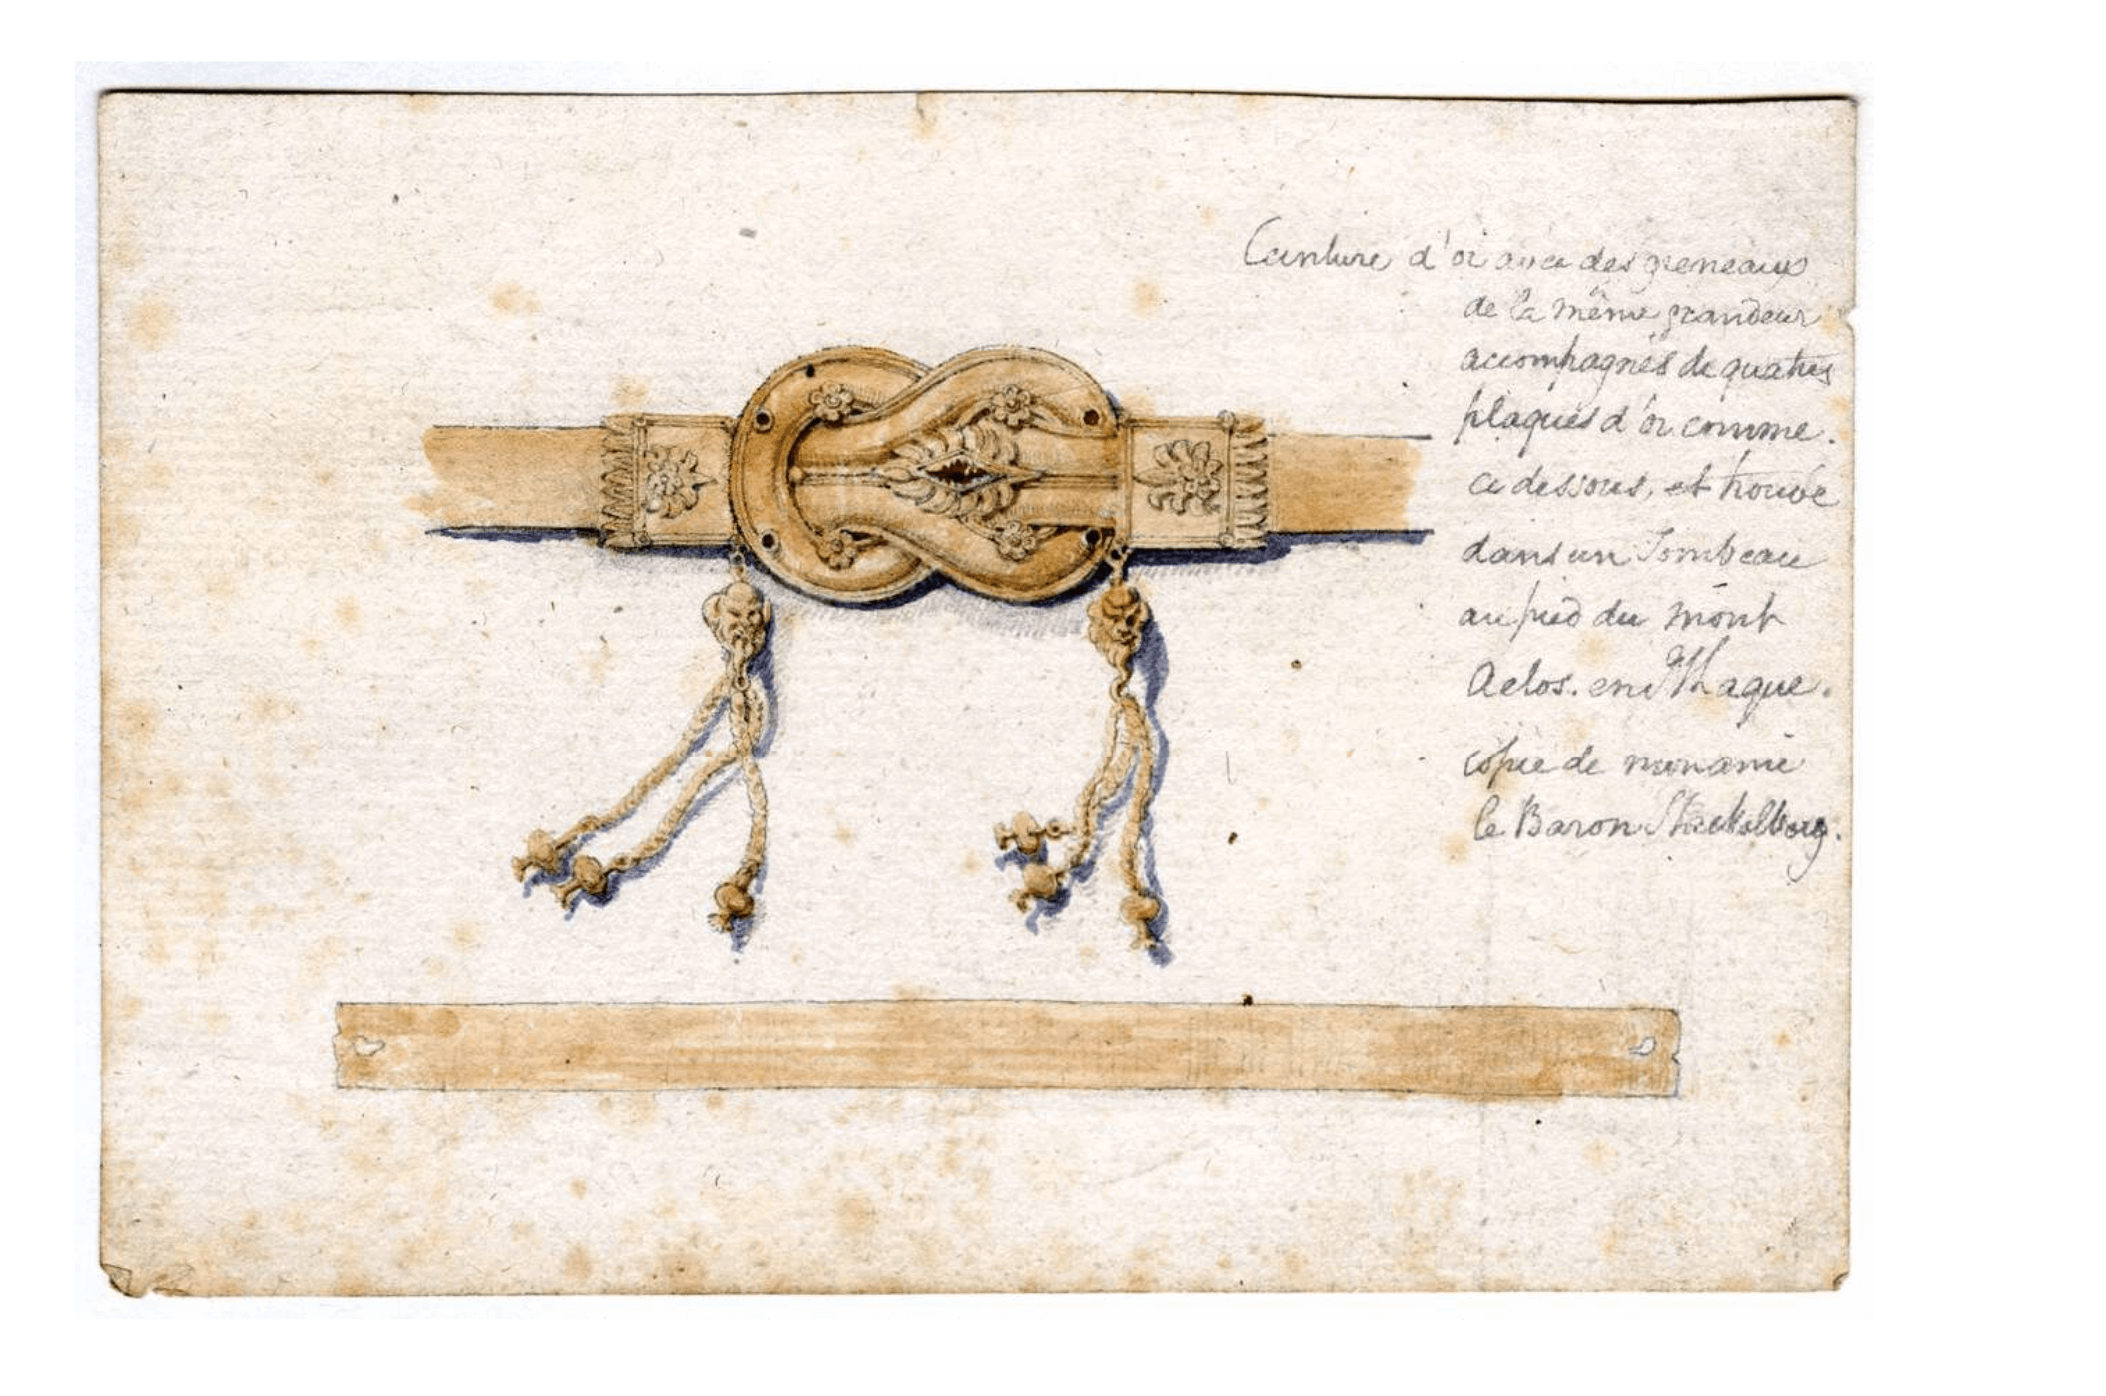 Ceinture d'or avec des greneaux
de la même grandeur
accompagnés de quatres
plaques d'or comme.
ci dessous, et trouvé
dans un Tombeau
au pied du mont
Aelos. en Ithaque.
copié de mon amie
le Baron Stackelberg.